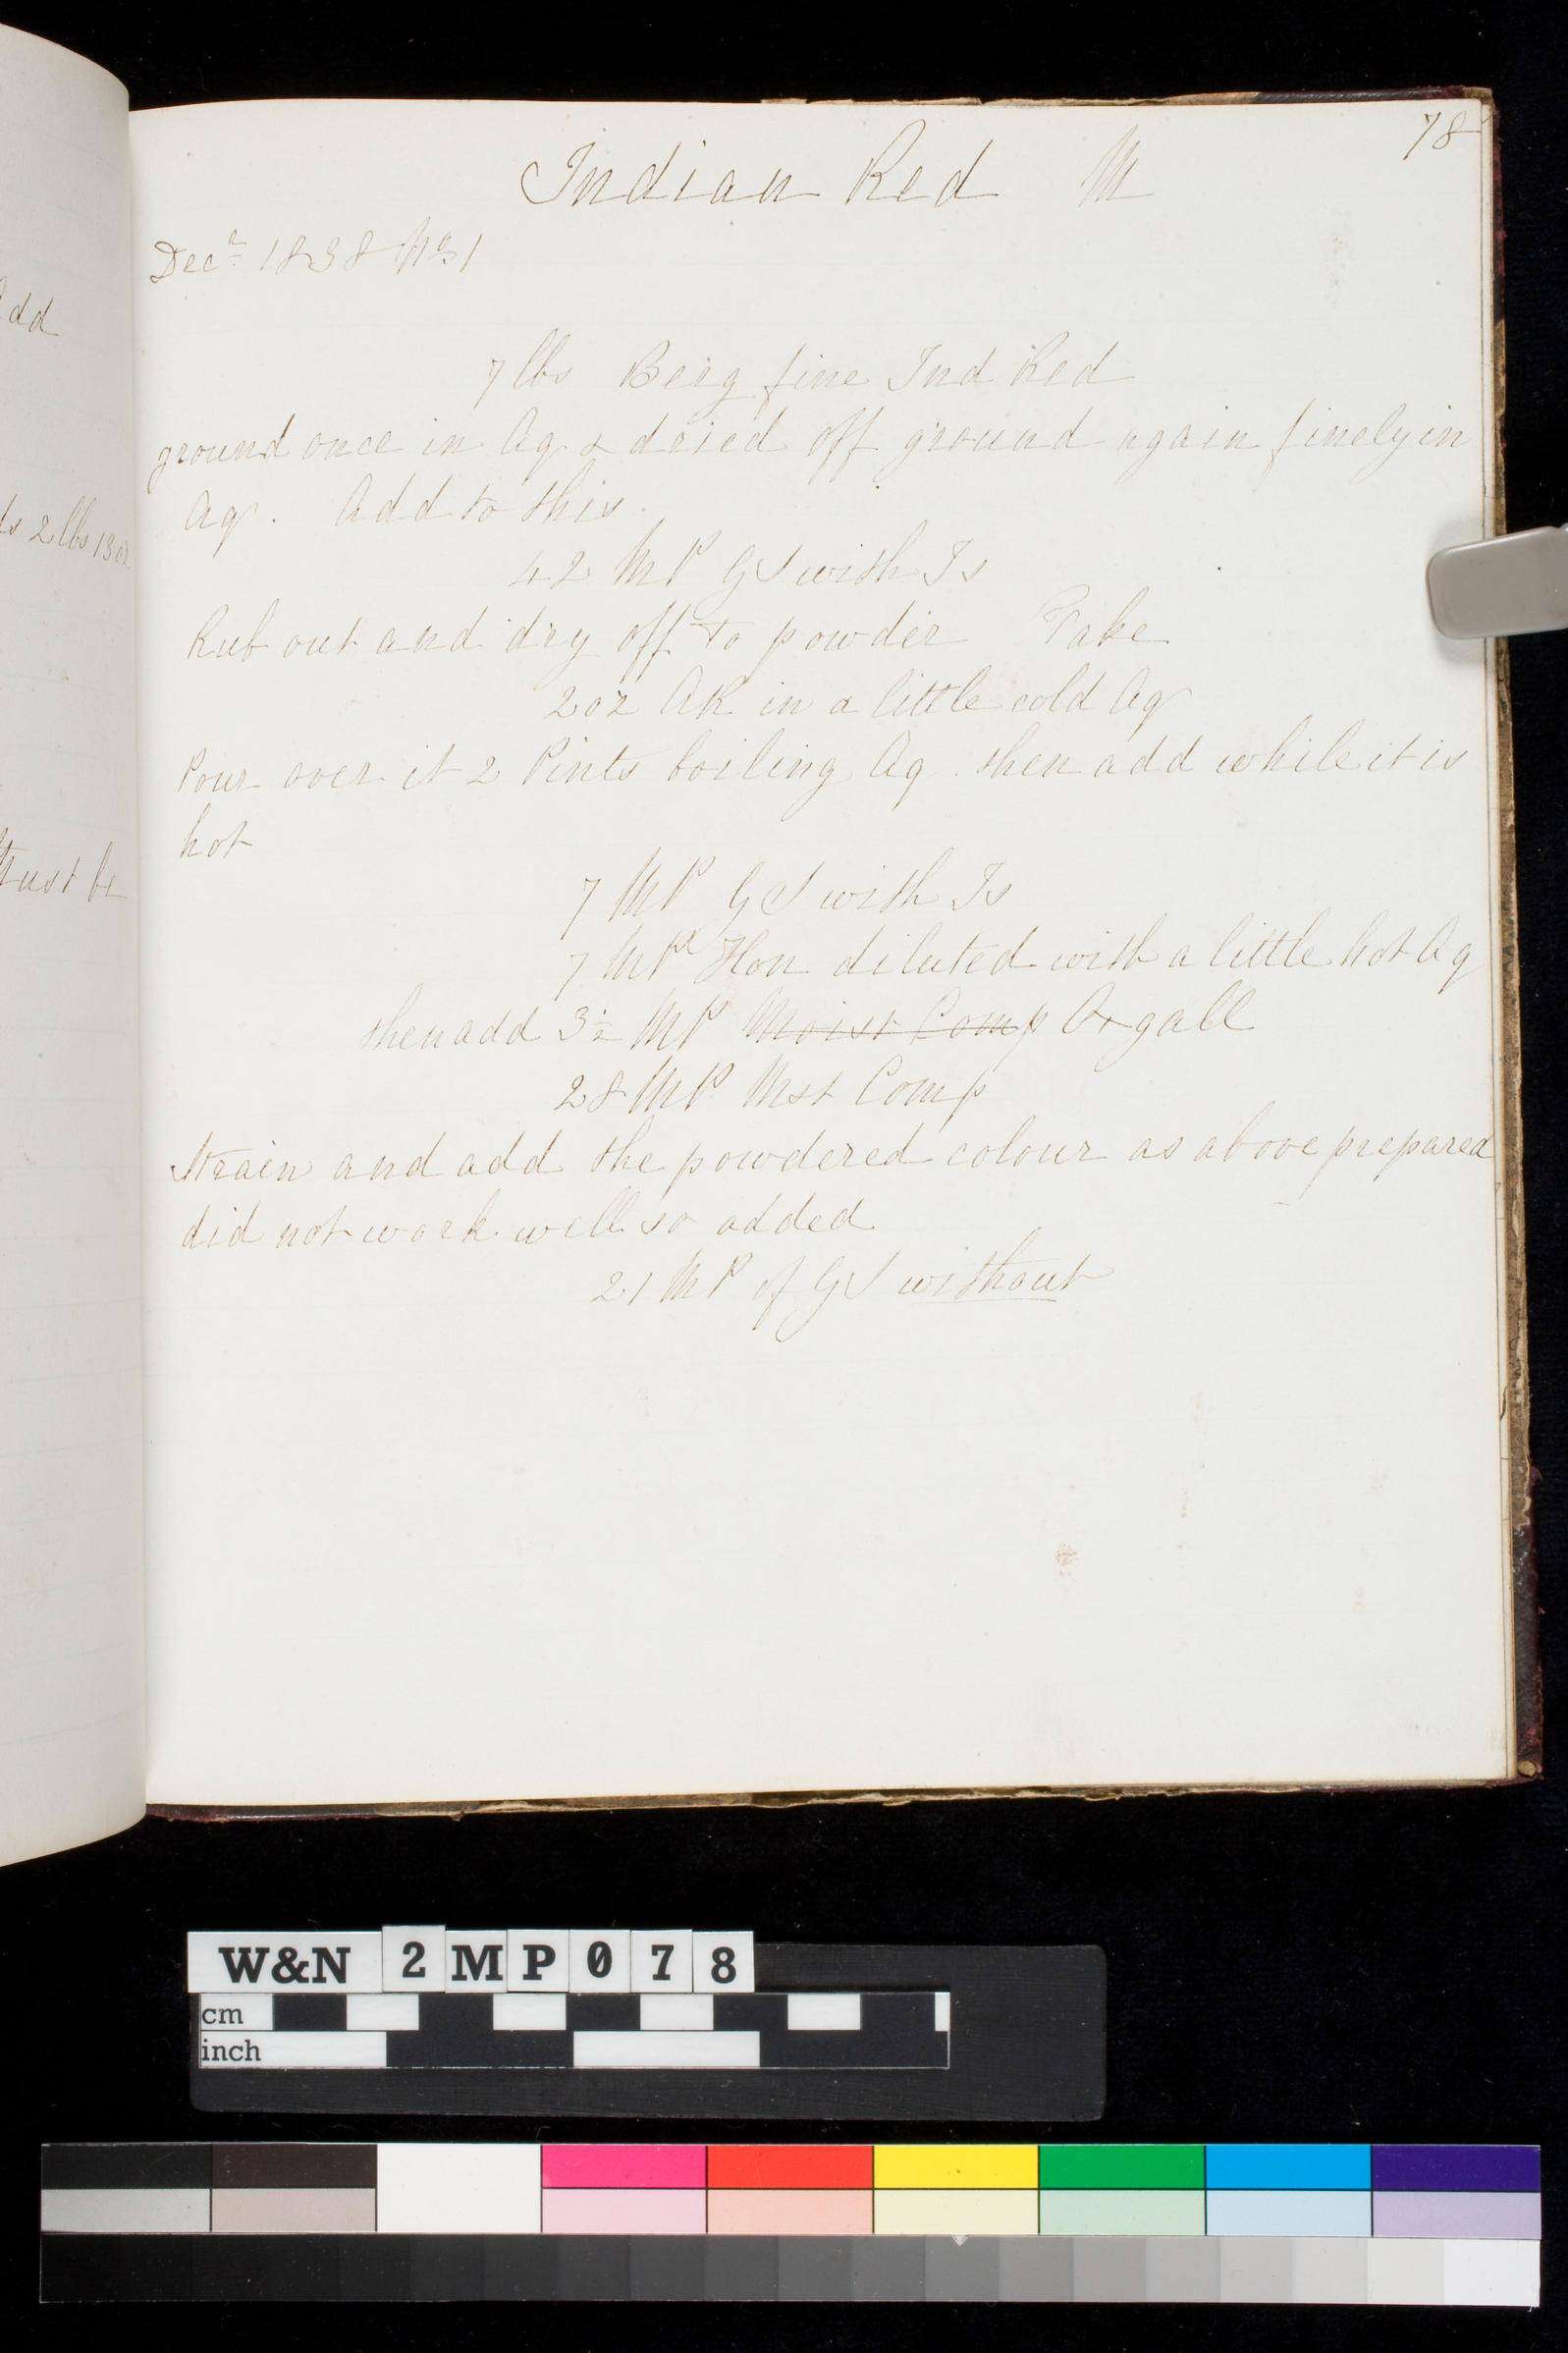 78
Indian Red M
Decr 1838 No 1
7 lbs Berg fine Ind Red
ground once in Aq & dried off ground again finely in
Aq. Add to this.
42 MP GS with Is
Rub out and dry off to powder Take
2 oz AR in a little cold Aq
Pour over it 2 Pints boiling Aq. then add while it is
hot
7 MP GS with Is
7 MP Hon diluted with a little hot Aq
then add 3½ MP Moist Comp Oxgall
28 MP Mst Comp
Strain and add the powdered colour as above prepared
did not work well so added
21 MP of GS without
dd
2 lbs 13 oz
Must be
W&N 2MP078
cm
inch